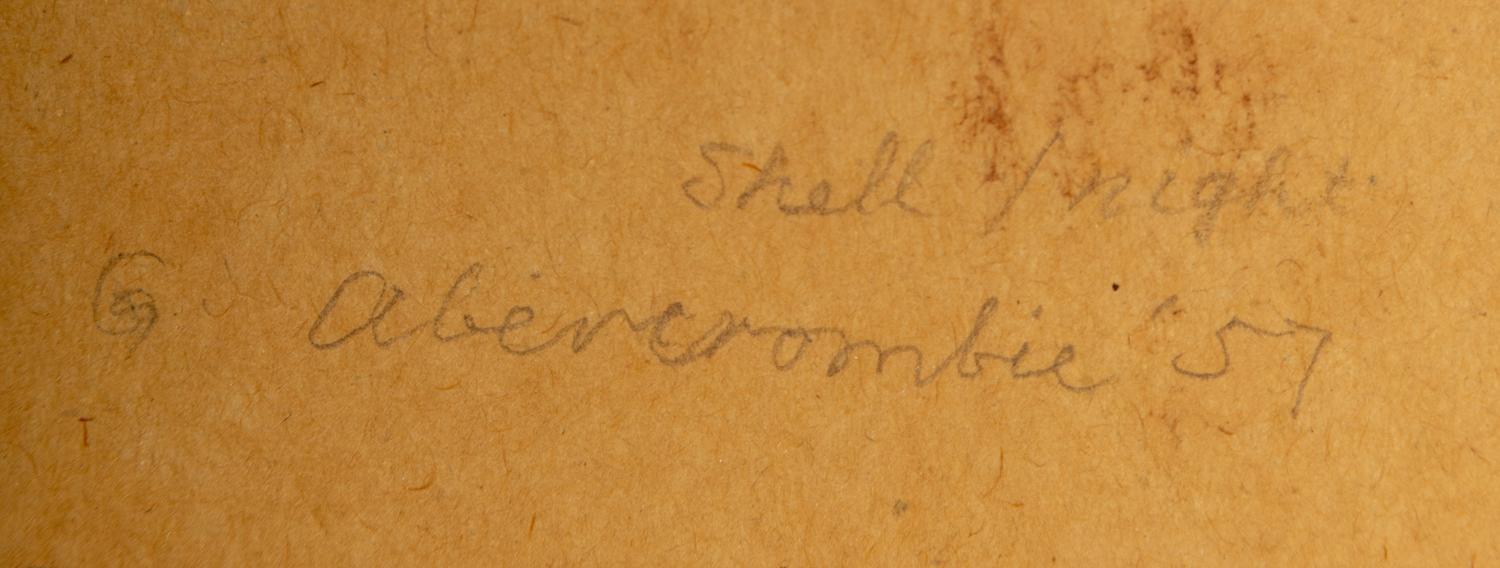 Shell / night
G Abercrombie '57